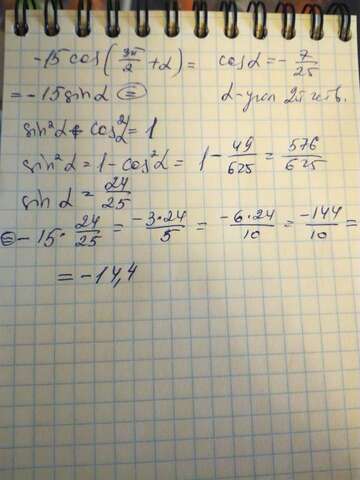 -15 cos(3π/2 + α) = cos α = - 7/25
= -15 sin α = α-угол 2й четв.
sin²α + cos²α = 1
sin²α = 1 - cos²α = 1 - 49/625 = 576/625
sin α = 24/25
= -15 · 24/25 = -3·24/5 = -6·24/10 = -144/10 =
= -14,4